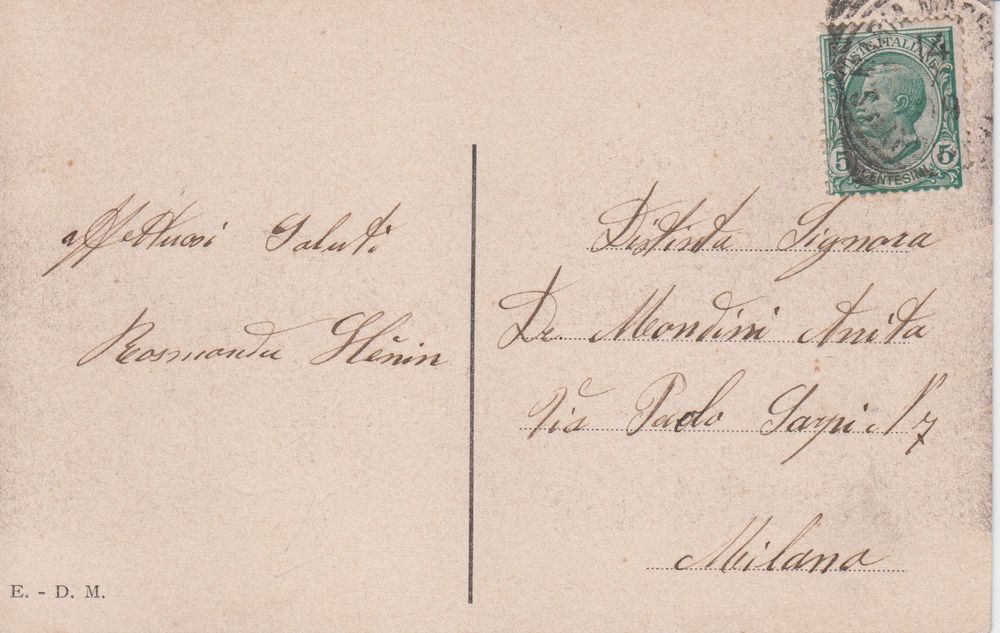 affettuosi Saluti
Rosmonda Hénin
E. - D. M.
POSTE ITALIANE
5 CENTESIMI 5
Distinta Signora
De. Mondini Anita
Via Paolo Sarpi N 7
Milano